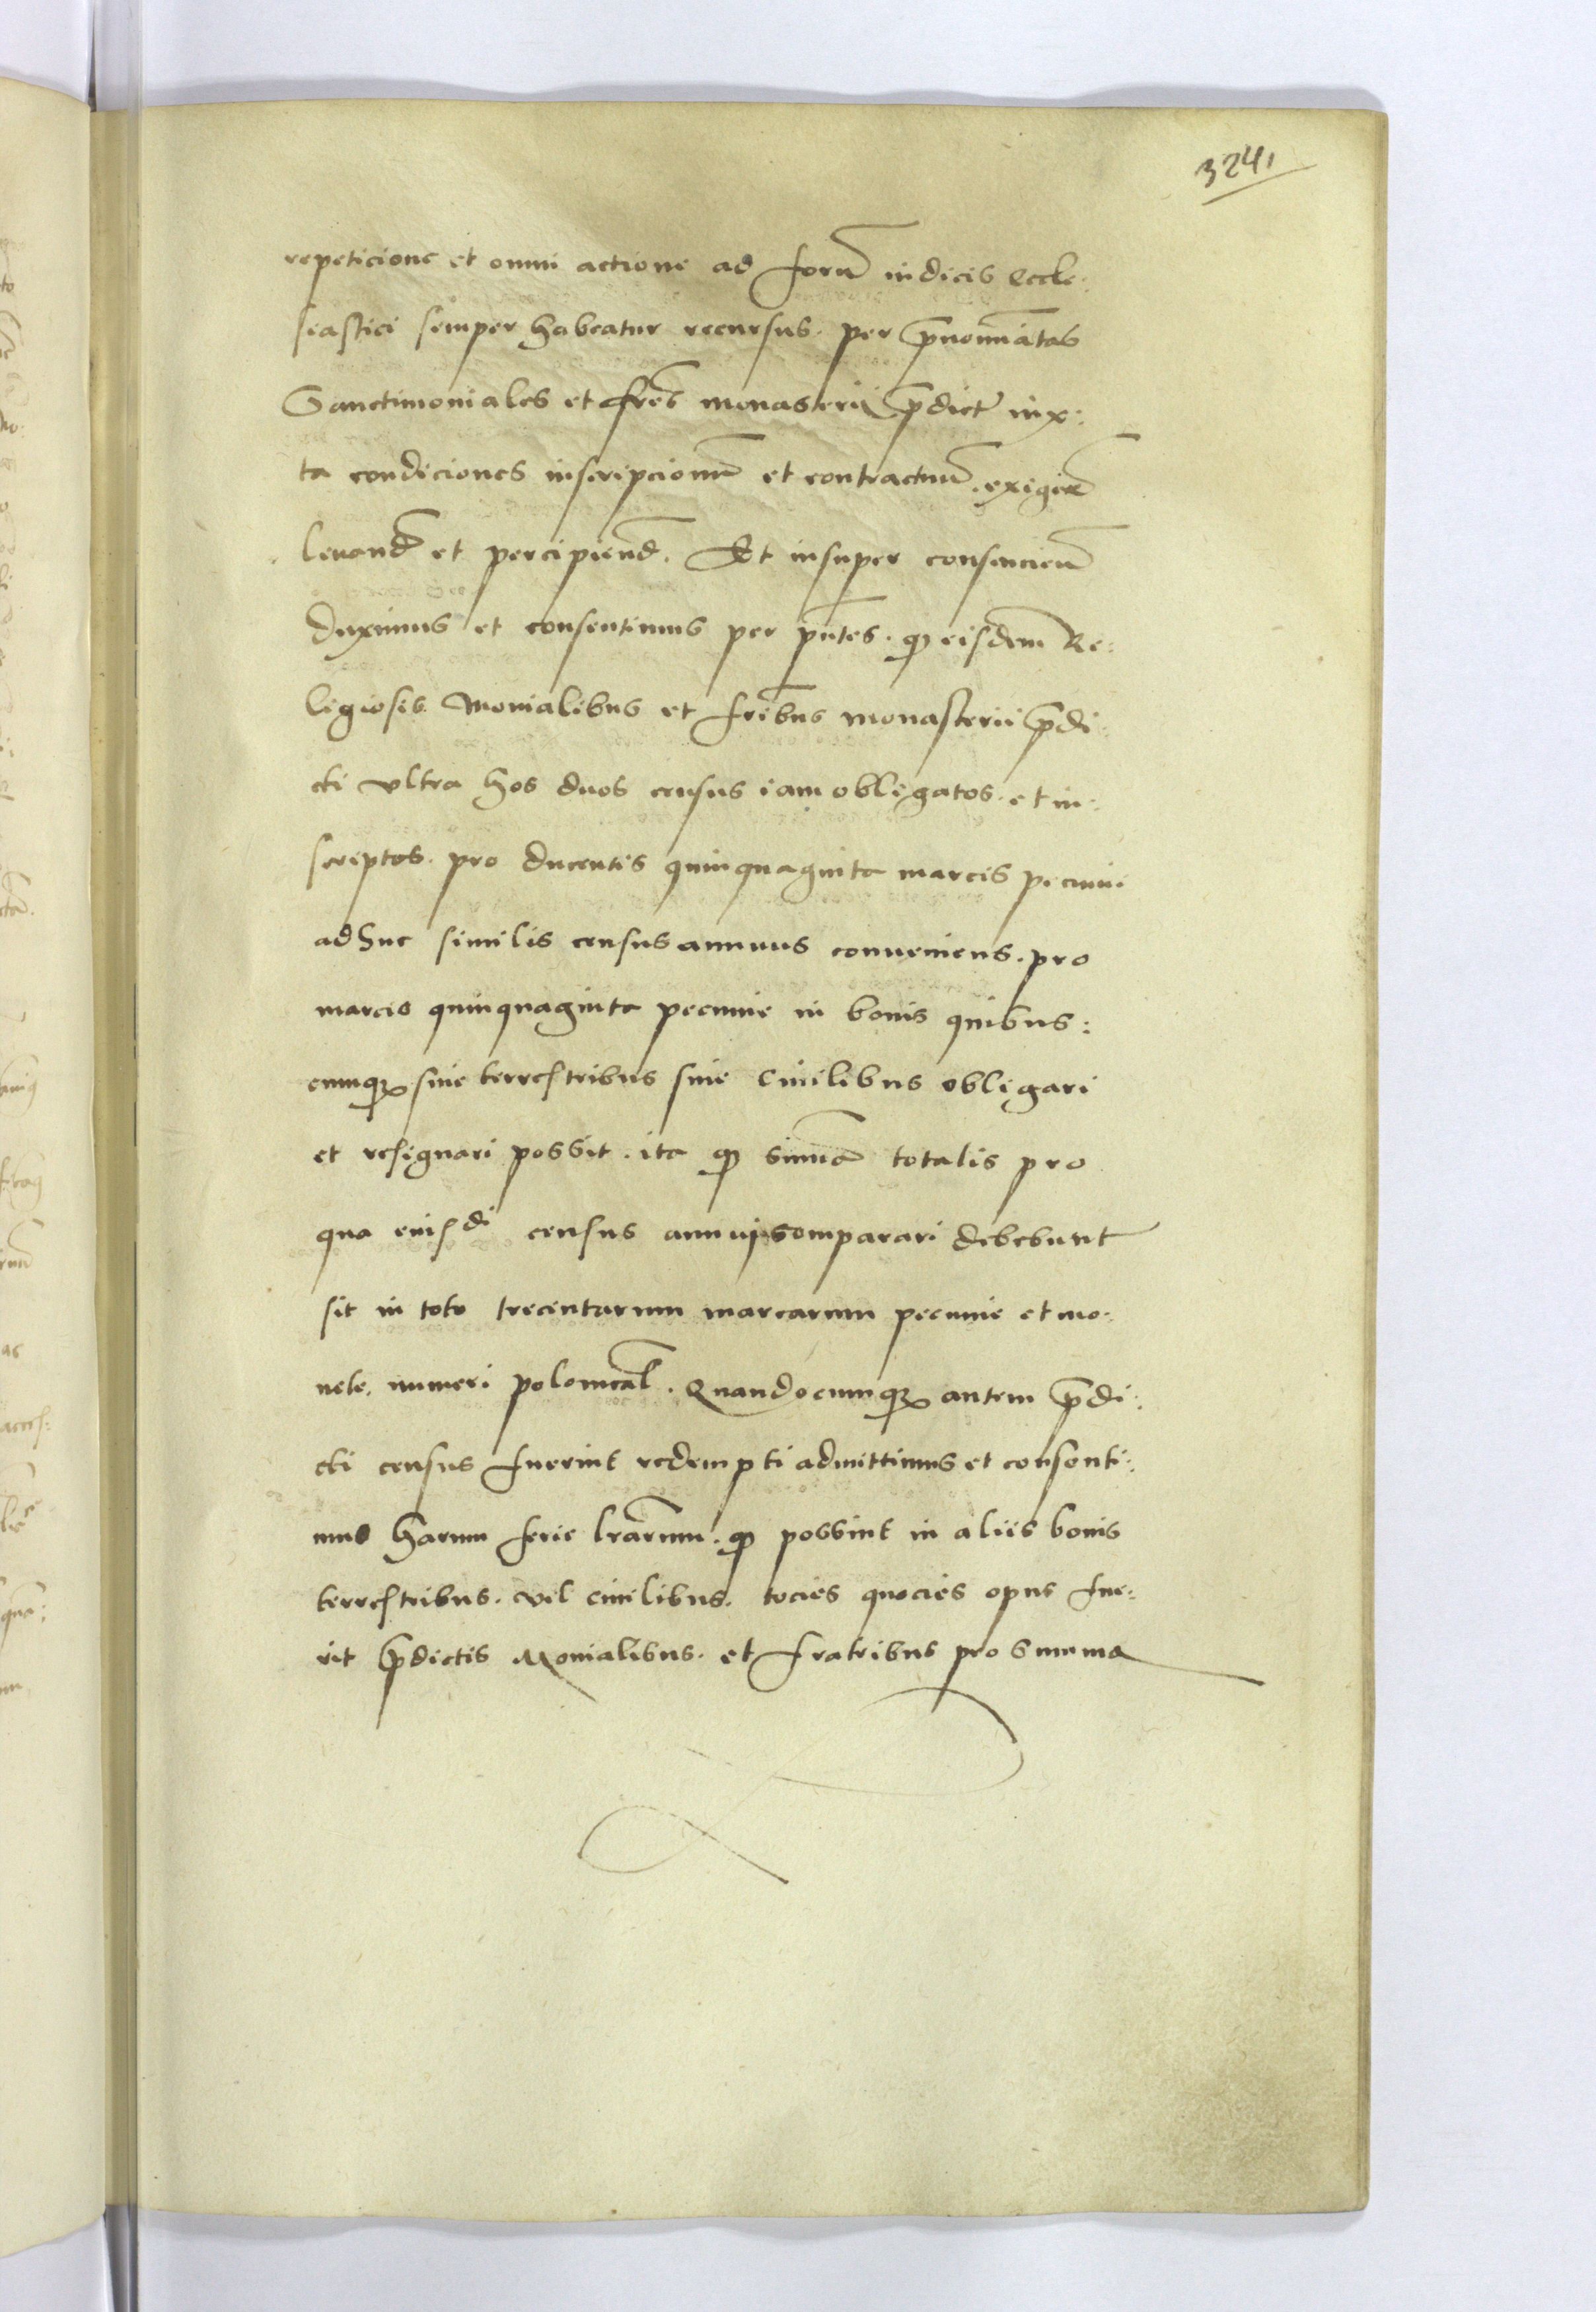 3241
repeticione et omni actione ad forū iudicis eccle:
siastici semper habeatur recursus. per p̄nominatas
Sanctimoniales et fr̄es monasterii p̄dict iux:
ta condiciones inscripcionū et contractuū. exigen̄
levand̄ et percipiend̄. Et insuper consenciend̄
duximus et consentimus per pn̄tes. qp eisdem Re:
ligiosis Monialibus et fr̄ibus monasterii p̄di:
cti vltra hos duos census iam obligatos. et in:
scriptos. pro ducentis quinquaginta marcis pecunie
adhuc similis census annuus conveniens. pro
marcis quinquaginta pecunie in bonis quibus:
cumqꝫ siue terrestribus siue Ciuilibus obligari
et resignari possit. ita qp sum̄a totalis pro
qua eiusdi census annui comparari debebunt
sit in toto trecentarum marcarum pecunie et mo:
nete. numeri polonical̄. Quandocumqꝫ autem p̄di:
cti census fuerint redempti admittimus et consenti:
mus harum serie lr̄arum. qp possint in aliis bonis
terrestribus. vel ciuilibus. tocies quocies opus fue:
rit p̄dictis Monialibus. et fratribus pro summa